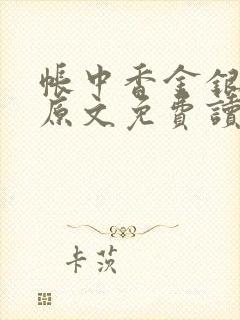 帳中香金銀
原文免費讀
卡茨